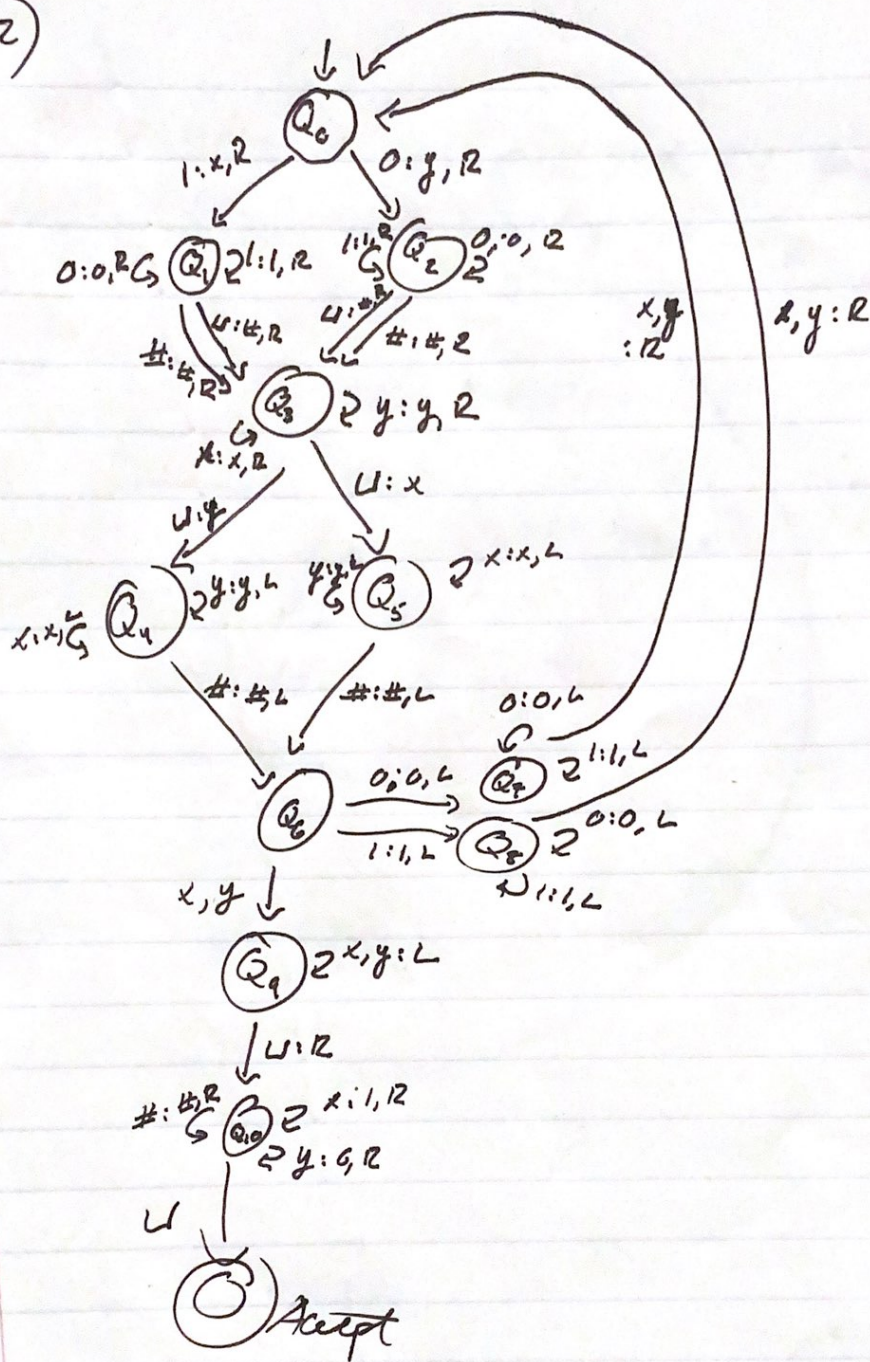 2)
Q₀
1:x,R
0:y,R
0:0,R
Q₁
1:1,R
1:1,R
Q₂
0,0,R
⊔:#,R
#:#,R
⊔:#,R
#:#,R
Q₃
y:y,R
x:x,R
⊔:y
⊔:x
x:x,L
Q₄
y:y,L
y:y,L
Q₅
x:x,L
#:#,L
#:#,L
x,y
:R
x,y:R
0:0,L
Q₇
1:1,L
Q₆
0:0,L
1:1,L
Q₈
0:0,L
1:1,L
x,y
Q₉
x,y:L
⊔:R
#:#,R
Q₁₀
x:1,R
y:0,R
⊔
Accept